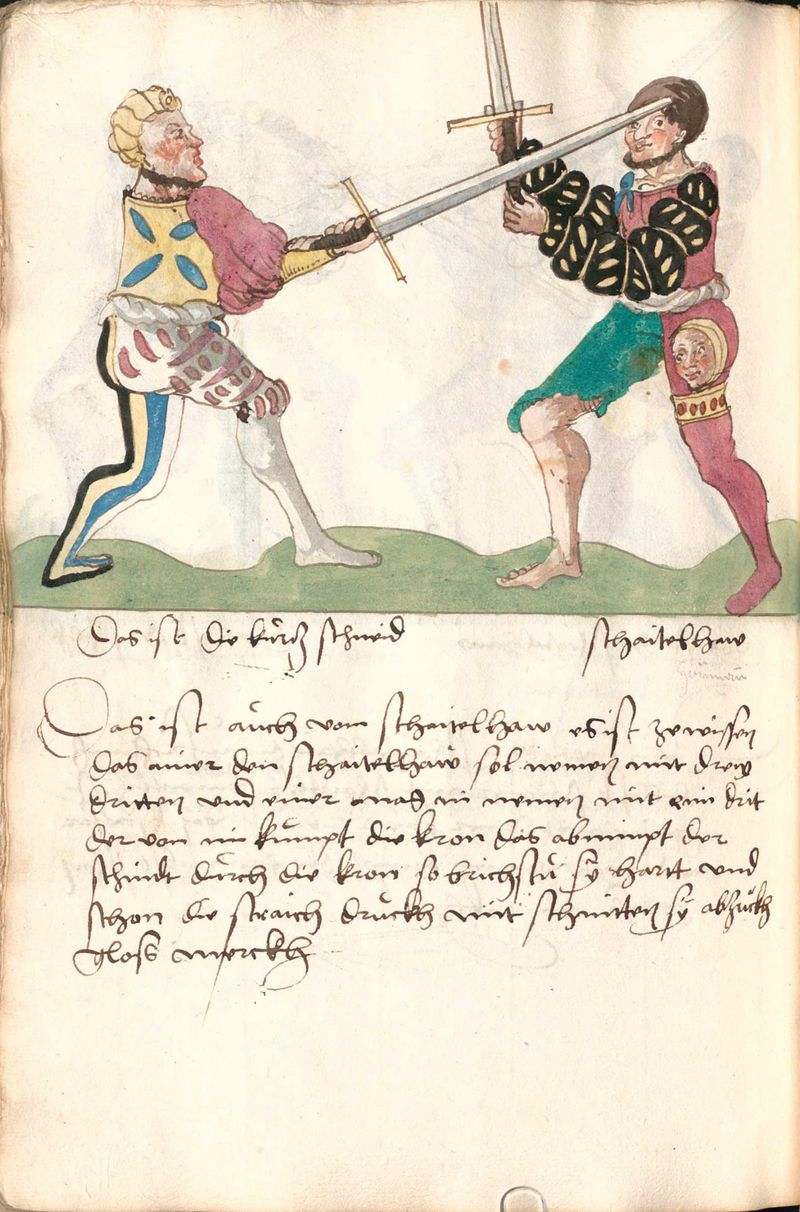 Das ist die kürtz schneid
schaitelhaw
Das ist aüch vom schaitelhaw es ist ze wissen
das ainer den schaitelhaw sol nemen mit dreÿ
dritten vnd einer mag in nemen mit eim drit
der von im kümpt die kron das abnimpt der
schnidt dürch die kron so brichstü sÿ hartt vnd
schon die straich drückh mit schnitten sÿ abzückh
glosß merckh